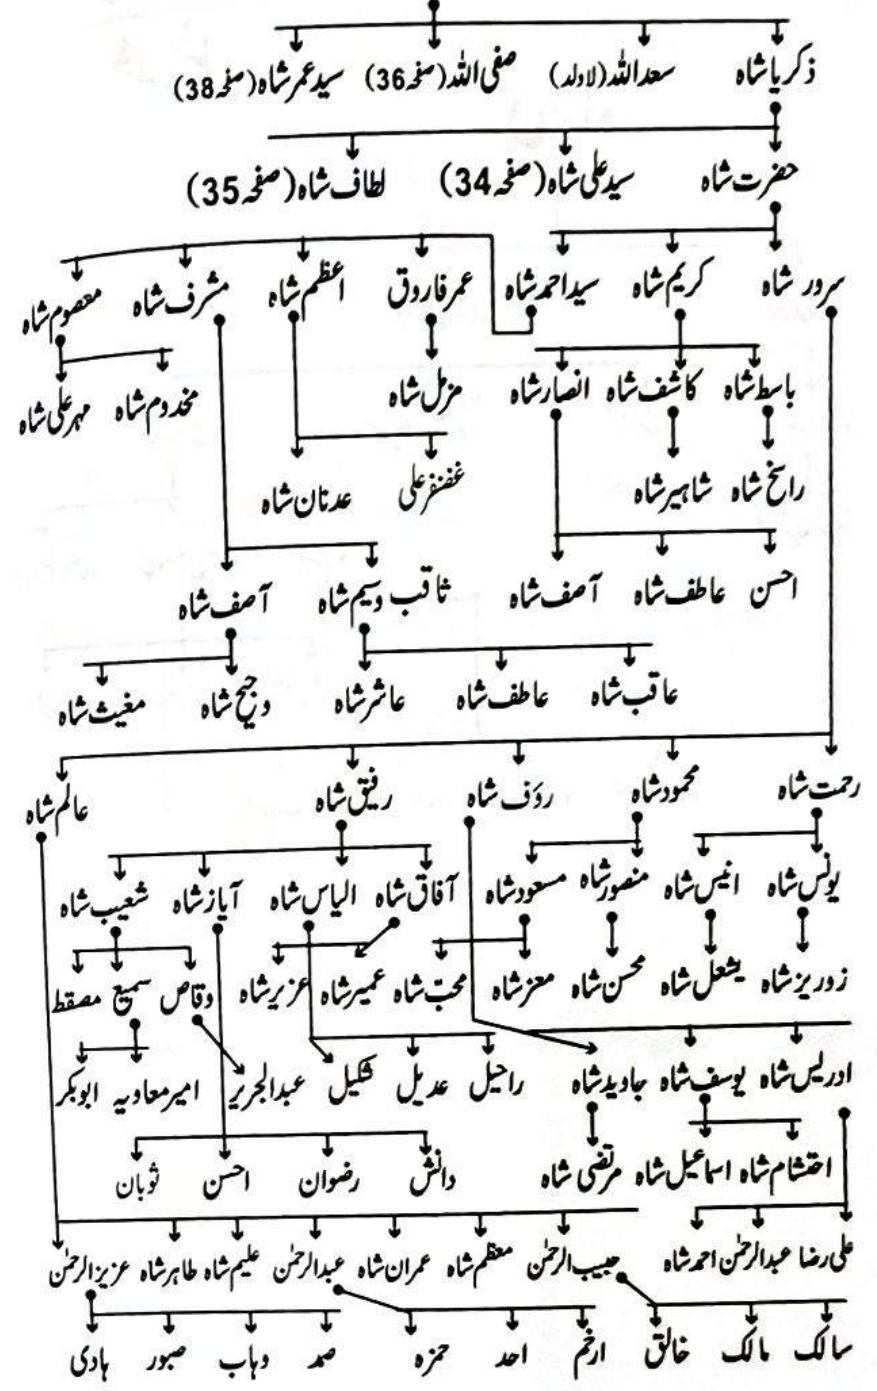 ذکریا شاہ سعد اللہ (لاولد) صفی اللہ (صفحہ 36) سید عمر شاہ (صفحہ 38)
حضرت شاہ سید علی شاہ (صفحہ 34) لطاف شاہ (صفحہ 35)
سرور شاہ کریم شاہ سید احمد شاہ عمر فاروق اعظم شاہ مشرف شاہ معصوم شاہ
باسط شاہ کاشف شاہ انصار شاہ مزمل شاہ مخدوم شاہ مہر علی شاہ
راسخ شاہ شاہیر شاہ غضنفر علی عدنان شاہ
احسن عاطف شاہ آصف شاہ ثاقب وسیم شاہ آصف شاہ
عاقب شاہ عاطف شاہ عاشر شاہ وجیح شاہ مغیث شاہ
رحمت شاہ محمود شاہ رؤف شاہ رفیق شاہ عالم شاہ
یونس شاہ انیس شاہ منصور شاہ مسعود شاہ آفاق شاہ الیاس شاہ آیاز شاہ شعیب شاہ
زوریز شاہ یشعل شاہ محسن شاہ معز شاہ محب شاہ عمیر شاہ عزیر شاہ وقاص سمیع مصقط
ادریس شاہ یوسف شاہ جاوید شاہ راحیل عدیل شکیل عبدالجریر امیر معاویہ ابوبکر
احتشام شاہ اسماعیل شاہ مرتضی شاہ دانش رضوان احسن ثوبان
علی رضا عبدالرحمٰن احمد شاہ حبیب الرحمٰن معظم شاہ عمران شاہ عبدالرحمٰن علیم شاہ طاہر شاہ عزیز الرحمٰن
سالک مالک خالق ارحم احد حمزہ صمد وہاب صبور ہادی